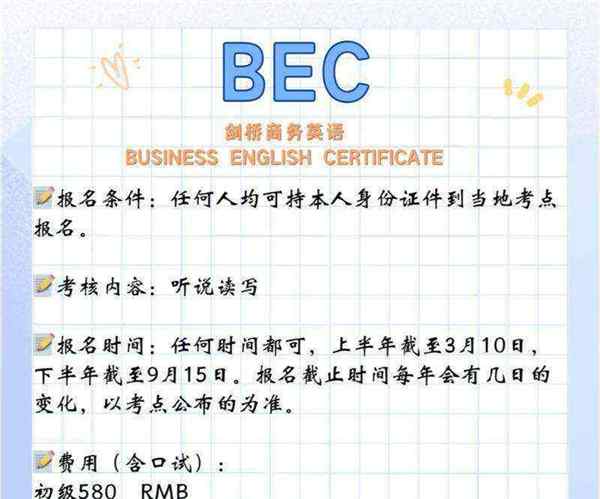 BEC
剑桥商务英语
BUSINESS ENGLISH CERTIFICATE
报名条件：任何人均可持本人身份证件到当地考点
报名。
考核内容：听说读写
报名时间：任何时间都可，上半年截至3月10日，
下半年截至9月15日。报名截止时间每年会有几日的
变化，以考点公布的为准。
费用（含口试）：
初级580 RMB